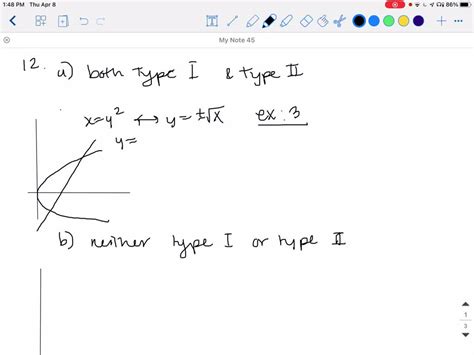 1:48 PM Thu Apr 8
86%
My Note 45
12. a) both type I & type II
x=y² ↔ y=±√x ex: 3
y=
b) neither type I or type II
1
3